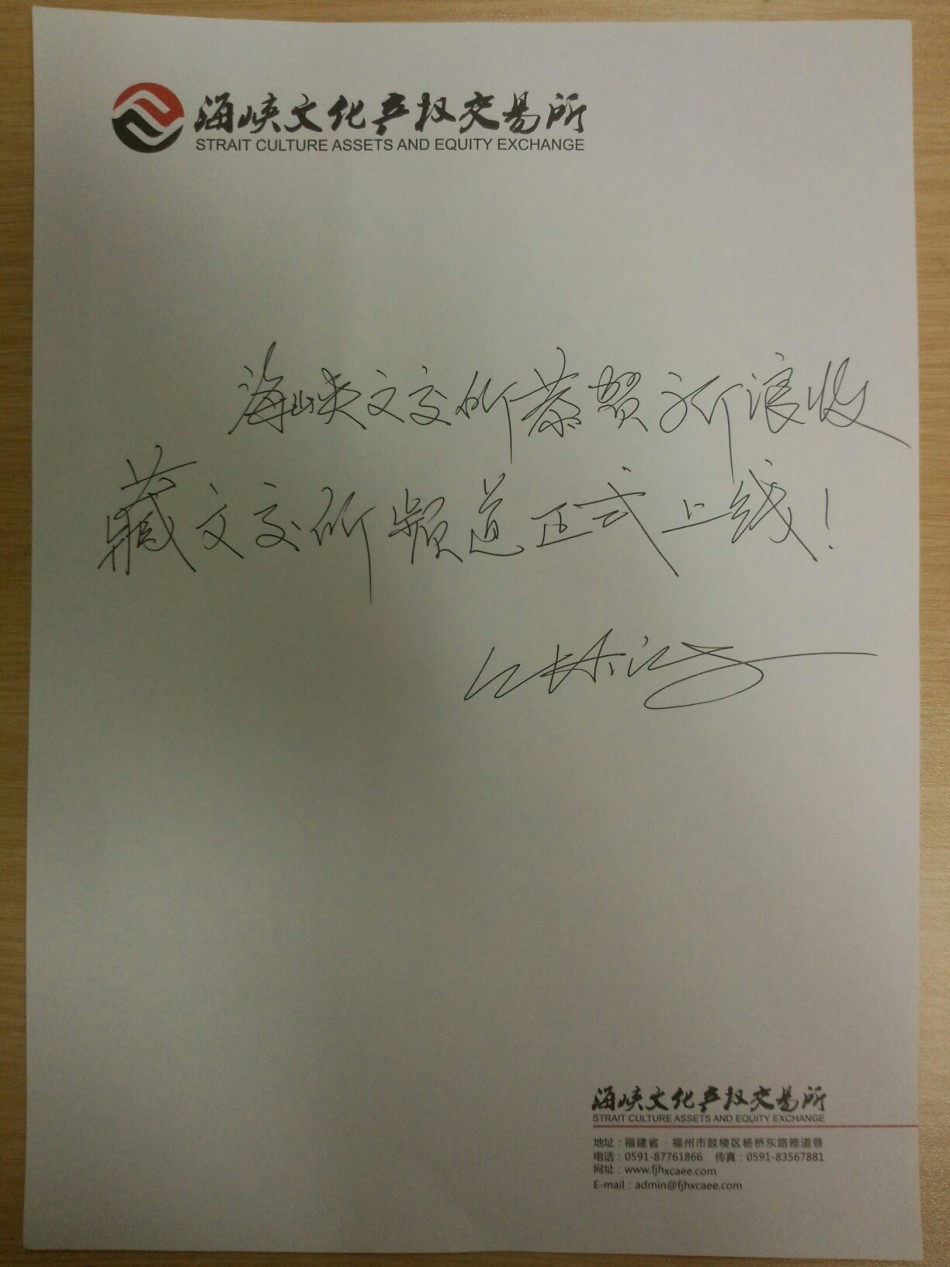 海峡文化产权交易所
STRAIT CULTURE ASSETS AND EQUITY EXCHANGE
海峡文交所恭贺新浪收
藏文交所频道正式上线！
海峡文化产权交易所
STRAIT CULTURE ASSETS AND EQUITY EXCHANGE
地址：福建省·福州市鼓楼区杨桥东路雅道巷
电话：0591-87761866 传真：0591-83567881
网址：www.fjhxcaee.com
E-mail：admin@fjhxcaee.com